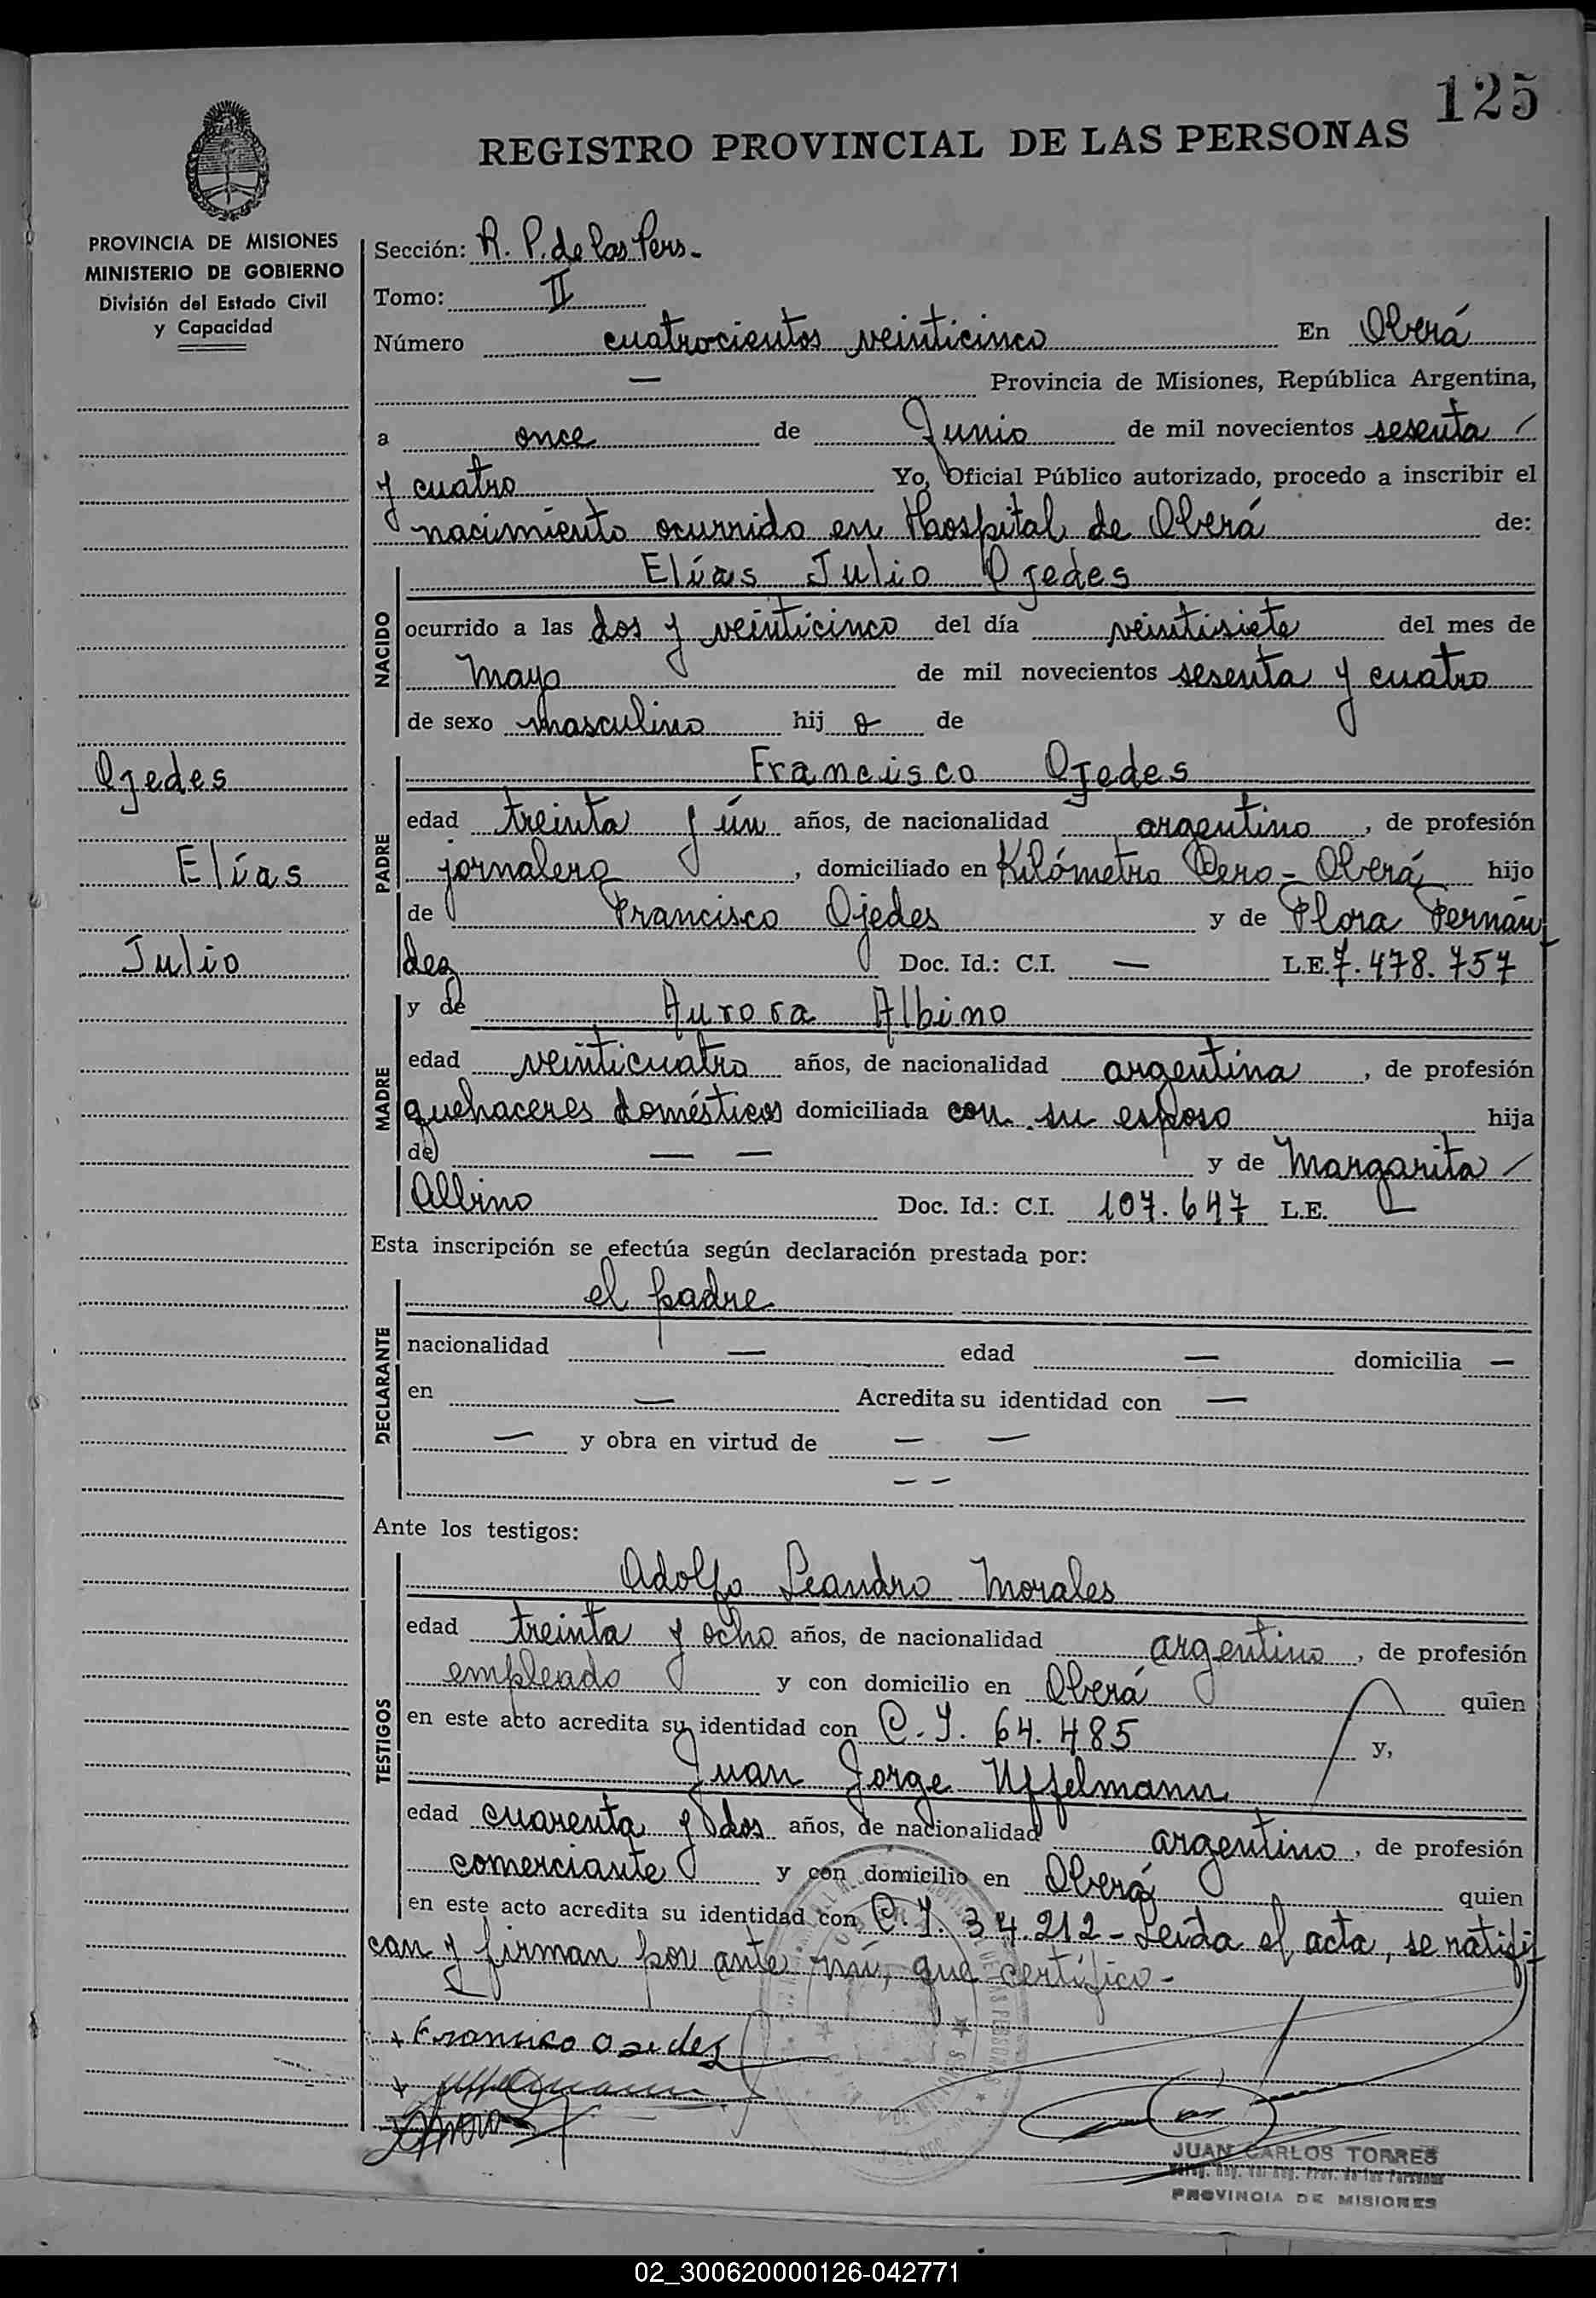 125
REGISTRO PROVINCIAL DE LAS PERSONAS
PROVINCIA DE MISIONES
MINISTERIO DE GOBIERNO
División del Estado Civil
y Capacidad
Ojedes
Elías
Julio
Sección: R. P. de las Pers.-
Tomo: II
Número cuatrocientos veinticinco En Oberá
— Provincia de Misiones, República Argentina,
a once de Junio de mil novecientos sesenta /
y cuatro Yo, Oficial Público autorizado, procedo a inscribir el
nacimiento ocurrido en Hospital de Oberá de:
NACIDO
Elías Julio Ojedes
ocurrido a las dos y veinticinco del día veintisiete del mes de
Mayo de mil novecientos sesenta y cuatro
de sexo masculino hij o de
PADRE
Francisco Ojedes
edad treinta y ún años, de nacionalidad argentino, de profesión
jornalero, domiciliado en Kilómetro Cero - Oberá hijo
de Francisco Ojedes y de Flora Fernán
dez Doc. Id.: C.I. — L.E. 7.478.757
MADRE
y de Aurora Albino
edad veinticuatro años, de nacionalidad argentina, de profesión
quehaceres domésticos domiciliada con su esposo hija
de — — y de Margarita /
Albino Doc. Id.: C.I. 107.647 L.E. —
Esta inscripción se efectúa según declaración prestada por:
DECLARANTE
el padre
nacionalidad — edad — domicilia —
en — Acredita su identidad con —
— y obra en virtud de — —
— —
Ante los testigos:
TESTIGOS
Adolfo Leandro Morales
edad treinta y ocho años, de nacionalidad argentino, de profesión
empleado y con domicilio en Oberá quien
en este acto acredita su identidad con C.I. 64.485 y,
Juan Jorge Uffelmann
edad cuarenta y dos años, de nacionalidad argentino, de profesión
comerciante y con domicilio en Oberá quien
en este acto acredita su identidad con C.I. 34.212 - Leída el acta, se ratifi
can y firman por ante mí, que certifico.-
+ Francisco Ojedez
JUAN CARLOS TORRES
PROVINCIA DE MISIONES
02_300620000126-042771